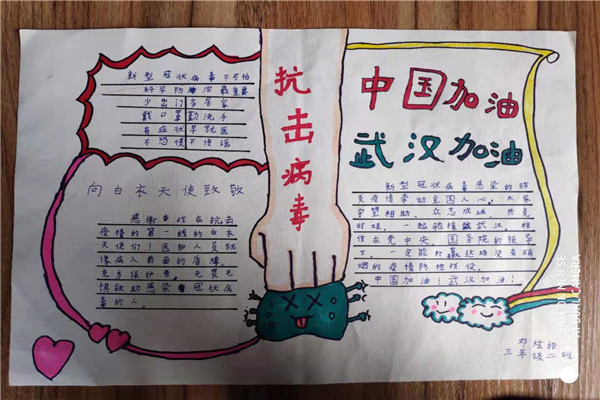 新型冠状病毒不可怕
科学防治最重要
少出门多居家
戴口罩勤洗手
有症状早就医
不恐慌不传谣
向白衣天使致敬
感谢战在抗击
疫情的第一线的白衣
天使们！医护人员就
像病人前面的盾牌，
免弃保护着，无畏无
惧救助感染冠状病
毒的人。
抗击病毒
中国加油
武汉加油
新型冠状病毒感染的肺
炎疫情牵动全国人心。大家
守望相助、众志成城、共克
时艰，一起驰援武汉。相
信在党中央、国务院的领导
下，一定能打赢这场没有硝
烟的疫情防控阻战。
中国加油！武汉加油！
三年级二班
AI QUAD CAMERA